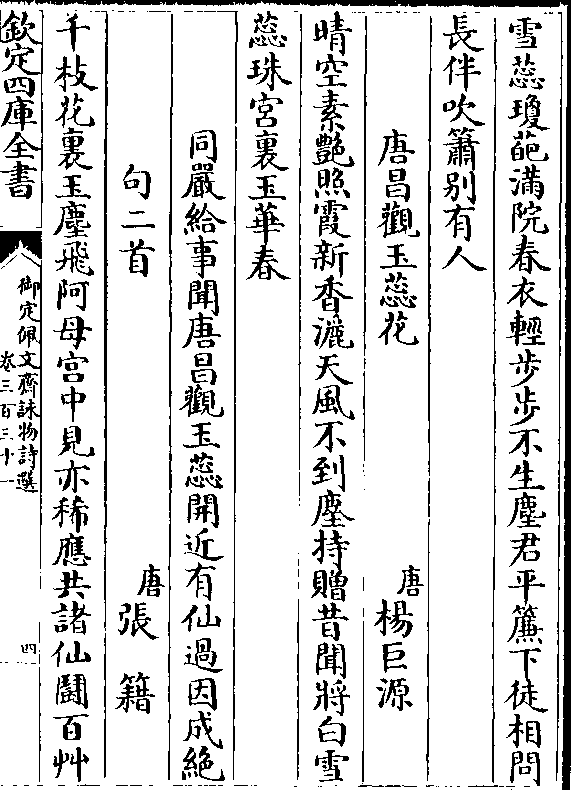 雪蕊瓊葩滿院春衣輕步步不生塵君平簾下徒相問
長伴吹簫别有人
唐昌觀玉蕊花　唐楊巨源
晴空素艷照霞新香灑天風不到塵持贈昔聞將白雪
蕊珠宮裏玉華春
同嚴給事聞唐昌觀玉蕊開近有仙過因成絶
句二首　唐張籍
千枝花裏玉塵飛阿母宫中見亦稀應共諸仙鬭百艸
欽定四庫全書
御定佩文齋詠物詩選
卷三百三十一
四